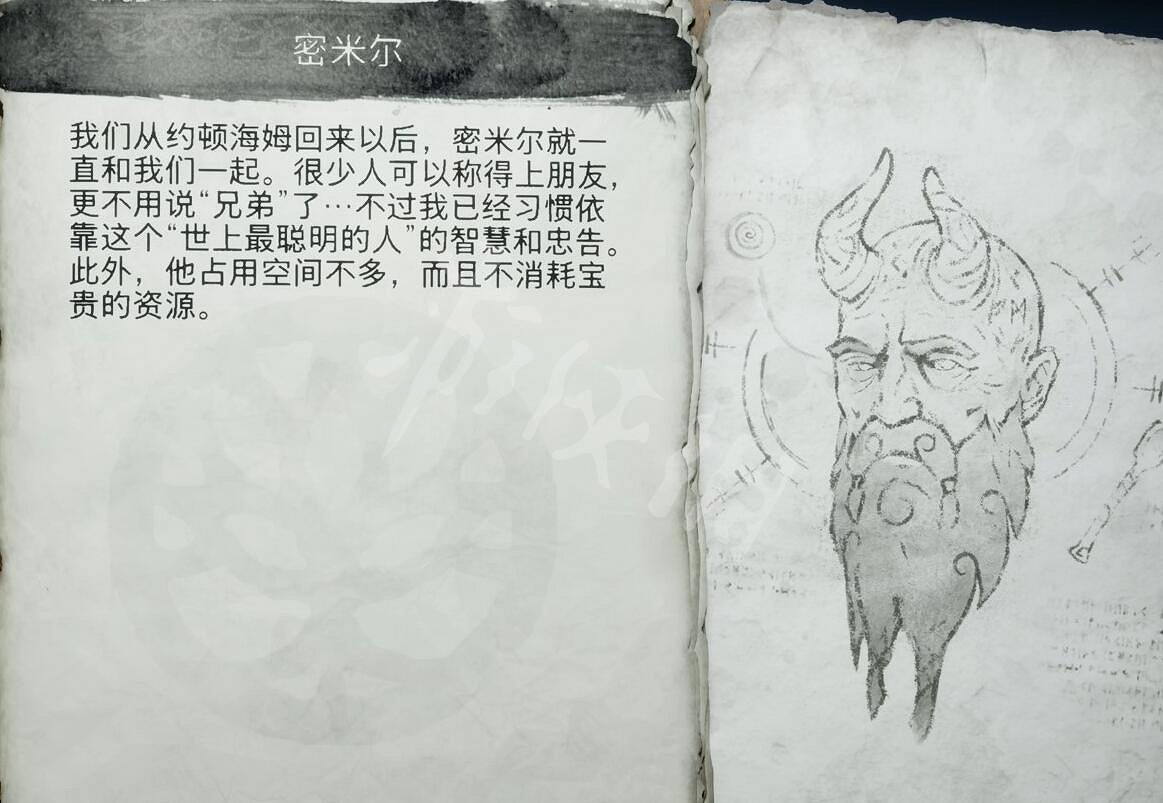 密米尔
我们从约顿海姆回来以后，密米尔就一
直和我们一起。很少人可以称得上朋友，
更不用说“兄弟”了…不过我已经习惯依
靠这个“世上最聪明的人”的智慧和忠告。
此外，他占用空间不多，而且不消耗宝
贵的资源。